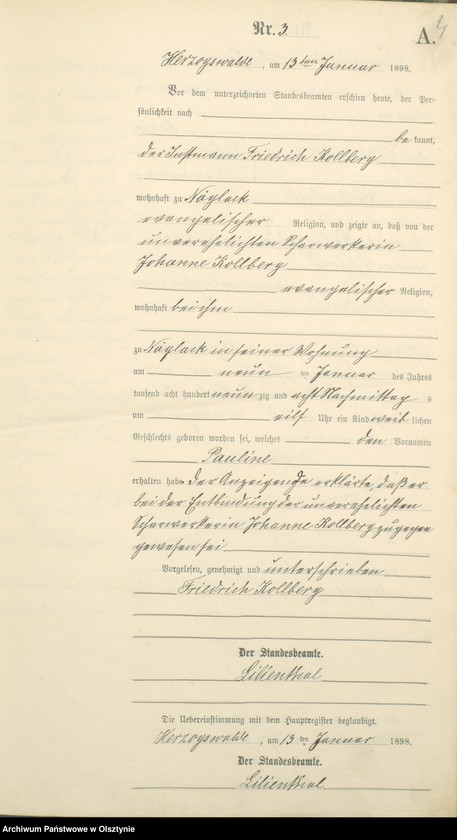 4
Nr. 3.
A.
Herzogswalde, am 13ten Januar 1898.
Vor dem unterzeichneten Standesbeamten erschien heute, der Per-
sönlichkeit nach
be kannt,
der Instmann Friedrich Kollberg
wohnhaft zu Näglack
evangelischer Religion, und zeigte an, daß von der
unverehelichten Scharwerkerin
Johanne Kollberg
evangelischer Religion,
wohnhaft bei ihm
zu Näglack in seiner Wohnung
am neun ten Januar des Jahres
tausend acht hundert neun zig und acht Nachmittag s
um eilf Uhr ein Kind weib lichen
Geschlechts geboren worden sei, welches den Vornamen
Pauline
erhalten habe. Der Anzeigende erklärte, daß er
bei der Entbindung der unverehelichten
Scharwerkerin Johanne Kollberg zugegen
gewesen sei
Vorgelesen, genehmigt und unterschrieben
Friedrich Kollberg
Der Standesbeamte.
Lilienthal
Die Uebereinstimmung mit dem Hauptregister beglaubigt.
Herzogswalde, am 13 ten Januar 1898.
Der Standesbeamte.
Lilienthal.
Archiwum Państwowe w Olsztynie